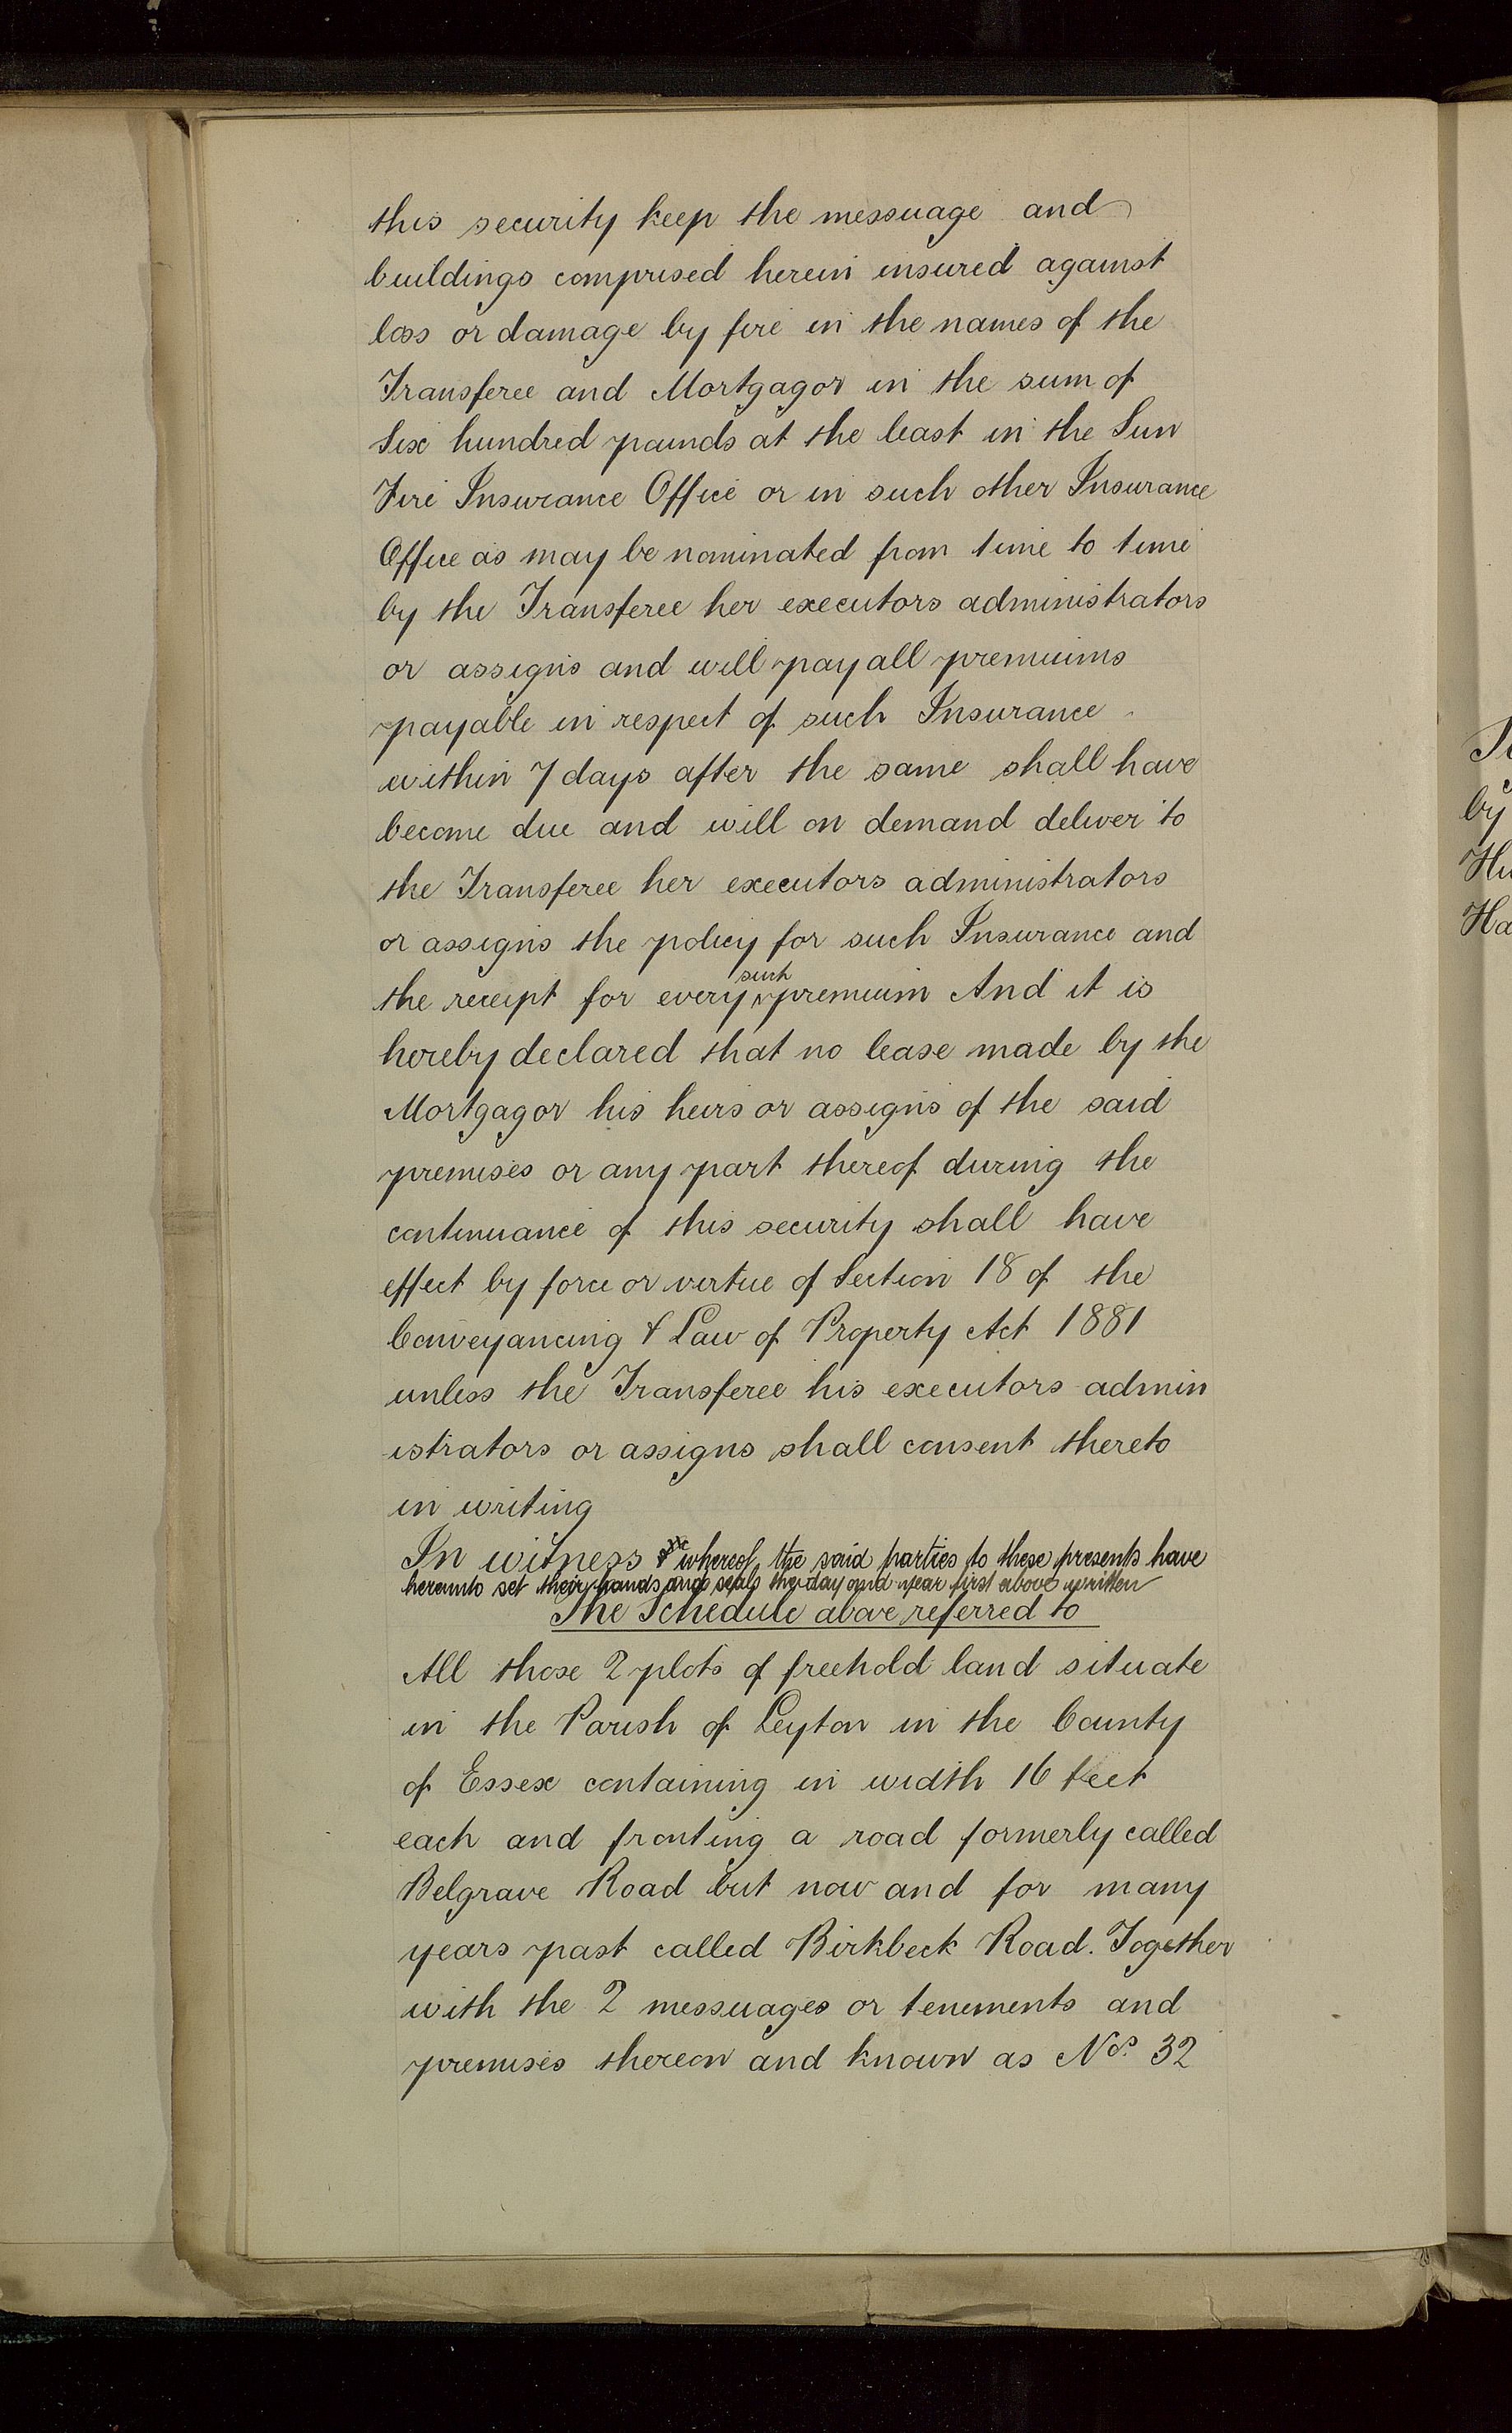 this security keep the messuage and
buildings comprised herein insured against
loss or damage by fire in the names of the
Transferee and Mortgagor in the sum of
Six hundred pounds at the least in the Sun
Fire Insurance Office or in such other Insurance
Office as may be nominated from time to time
by the Transferee her executors administrators
or assigns and will pay all premiums
payable in respect of such Insurance
within 7 days after the same shall have
become due and will on demand deliver to
the Transferee her executors administrators
or assigns the policy for such Insurance and
such
the receipt for every premium And it is
hereby declared that no lease made by the
Mortgagor his heirs or assigns of the said
premises or any part thereof during the
continuance of this security shall have
effect by force or virtue of Section 18 of the
Conveyancing & Law of Property Act 1881
unless the Transferee his executors admin
istrators or assigns shall consent thereto
in writing
In witness whereof the said parties to these presents have
hereunto set their hands and seals the day and year first above written
The Schedule above referred to
All those 2 plots of freehold land situate
in the Parish of Leyton in the County
of Essex containing in width 16 feet
each and fronting a road formerly called
Belgrave Road but now and for many
years past called Birkbeck Road. Together
with the 2 messuages or tenements and
premises thereon and known as Nos. 32
by